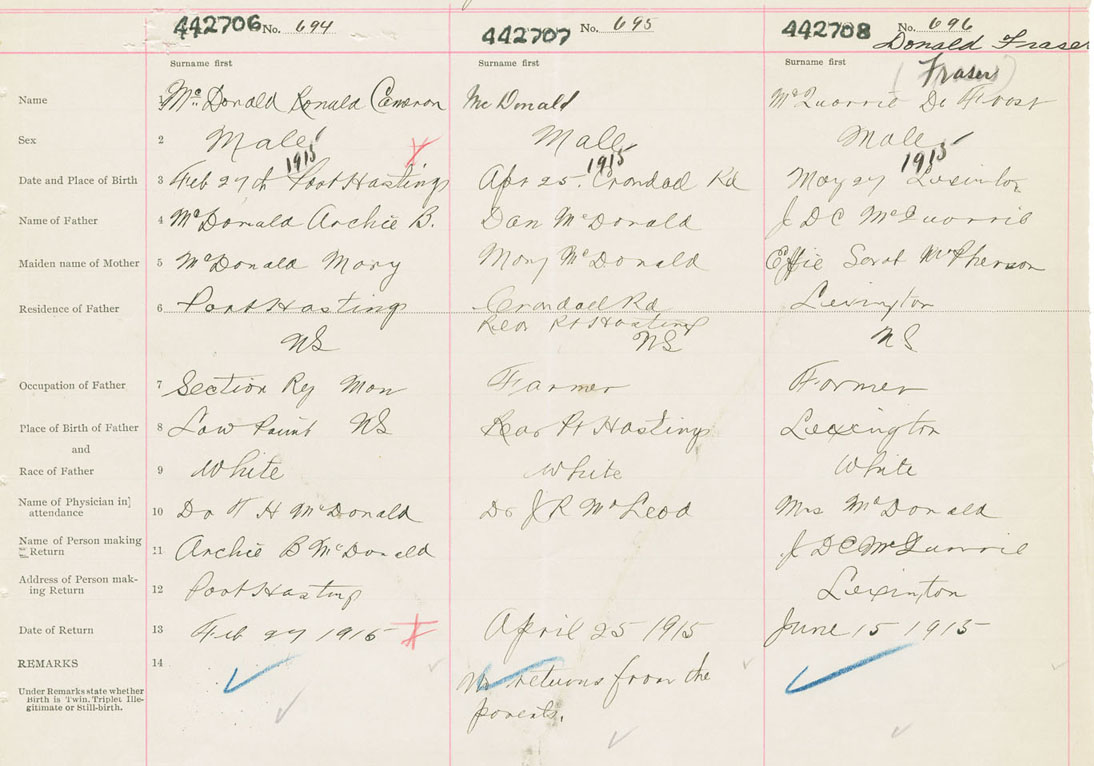 442706 No. 694 442707 No. 695 442708 No. 696
Donald Fraser
Surname first Surname first Surname first
Fraser
Name 1 McDonald Ronald Cameron McDonald McQuorrie De Frost
Sex 2 Male Male Male
1915 1915 1915
Date and Place of Birth 3 Feb 27th Port Hastings Apr 25. Crandall Rd May 27 Lexinton
Name of Father 4 McDonald Archie B. Dan McDonald J D C McQuorrie
Maiden name of Mother 5 McDonald Mary Mary McDonald Effie Sarah McPherson
Residence of Father 6 Port Hastings Crandall Rd Lexington
Rear Pt Hastings
NS NS NS
Occupation of Father 7 Section Ry Man Farmer Farmer
Place of Birth of Father 8 Low Point NS Rear Pt Hastings Lexington
and
Race of Father 9 White White White
Name of Physician in]
attendance 10 Dr H McDonald Dr J R McLeod Mrs McDonald
Name of Person making
Return 11 Archie B McDonald J D C McQuorrie
Address of Person mak-
ing Return 12 Port Hastings Lexington
Date of Return 13 Feb 27 1915 April 25 1915 June 15 1915
REMARKS 14
No returns from the
parents.
Under Remarks state whether
Birth is Twin, Triplet, Ille-
gitimate or Still-birth.